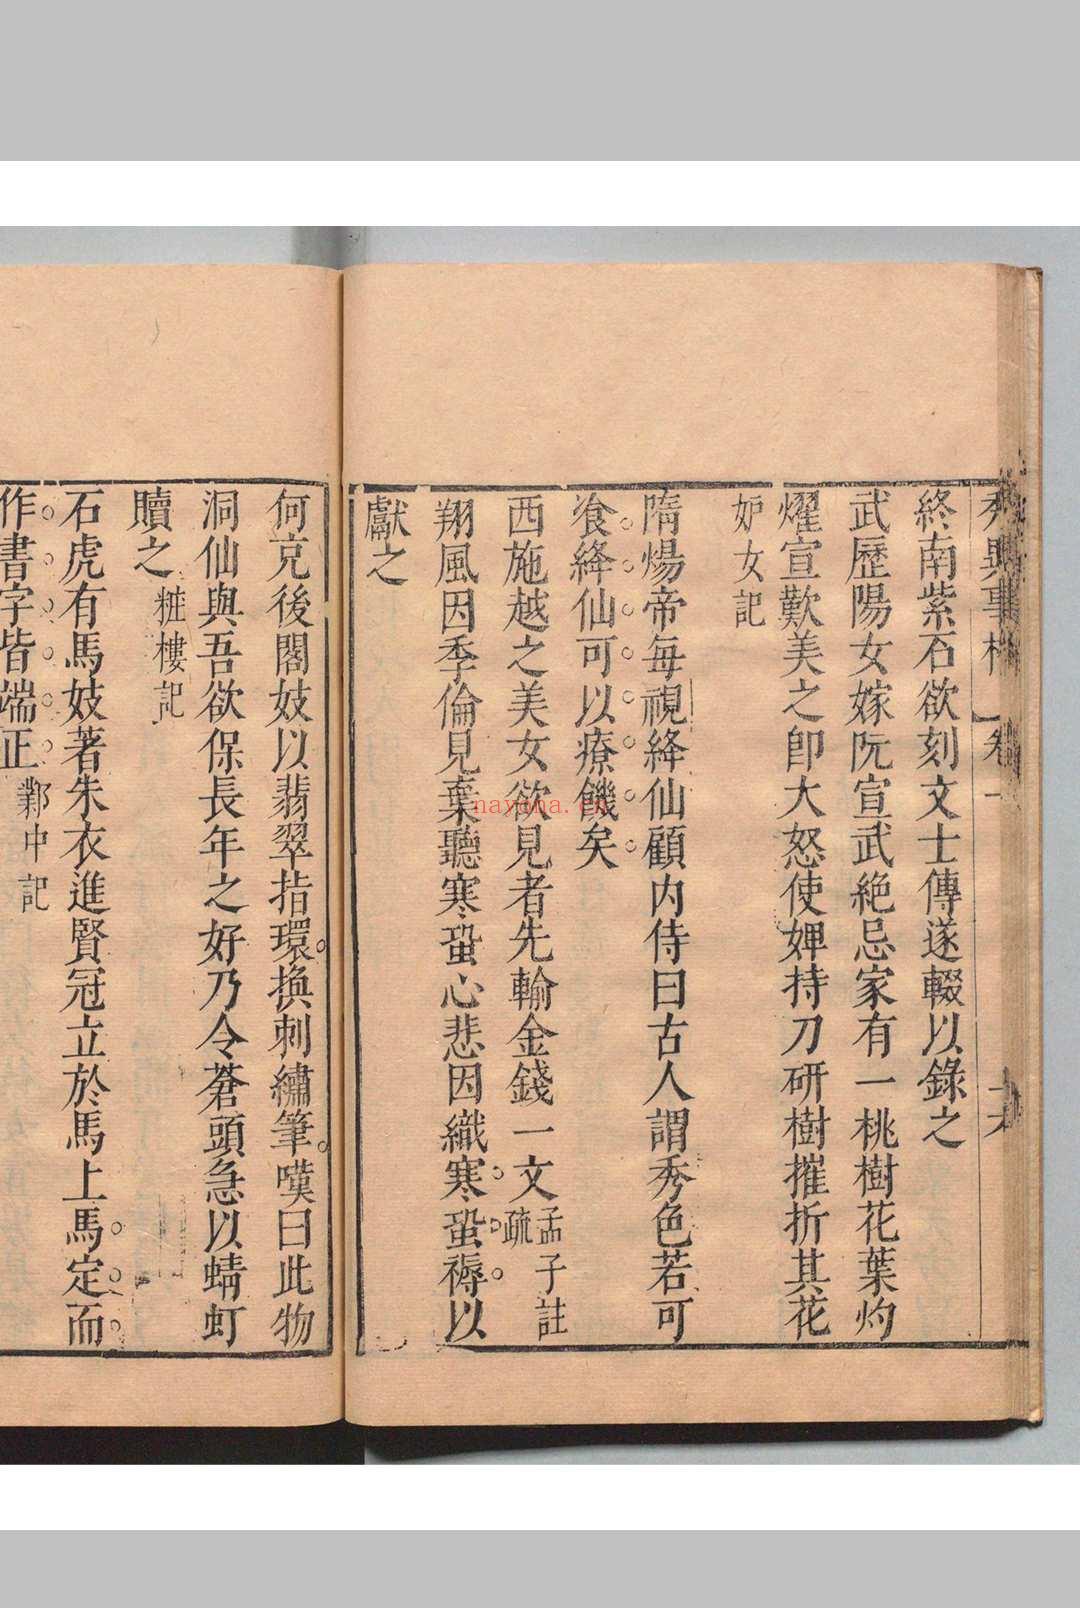 終南紫石欲刻文士傳遂輟以錄之
武歷陽女嫁阮宣武絕忌家有一桃樹花葉灼
燿宣歎美之卽大怒使婢持刀斫樹摧折其花
妒女記
隋煬帝每視絳仙顧內侍曰古人謂秀色若可
飡絳仙可以療饑矣
西施越之美女欲見者先輸金錢一文孟子註疏
翔風因季倫見棄聽寒蛩心悲因織寒蛩褥以
獻之
何克後閣妓以翡翠指環換刺繡筆嘆曰此物
洞仙與吾欲保長年之好乃令蒼頭急以蜻虹
贖之粧樓記
石虎有馬妓著朱衣進賢冠立於馬上馬定而
作書字皆端正鄴中記
nayona.cn